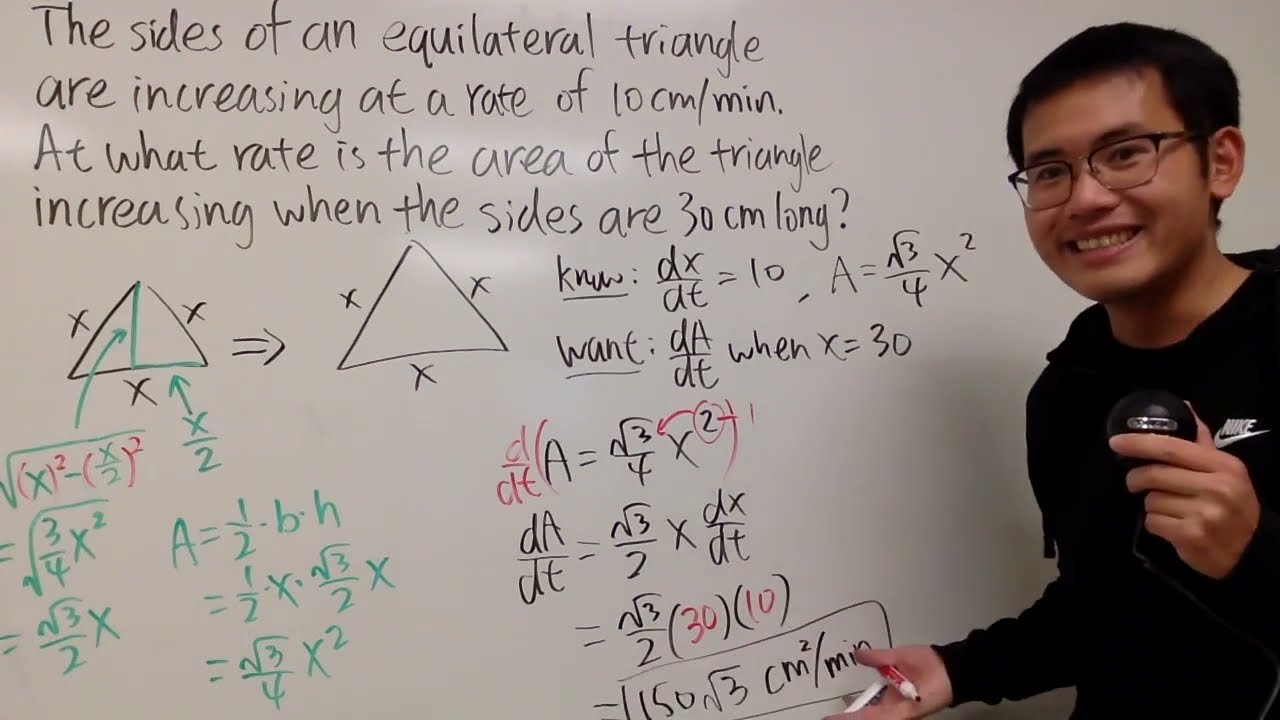 The sides of an equilateral triangle
are increasing at a rate of 10 cm/min.
At what rate is the area of the triangle
increasing when the sides are 30 cm long?
know: dx/dt = 10, A = √3/4 x²
want: dA/dt when x = 30
x x
x
x/2
⇒
x x
x
√(x)²-(x/2)²
= √3/4 x²
= √3/2 x
A = 1/2 · b · h
= 1/2 · x · √3/2 x
= √3/4 x²
d/dt (A = √3/4 x²)
dA/dt = √3/2 x dx/dt
= √3/2 (30)(10)
= 150√3 cm²/min
NIKE